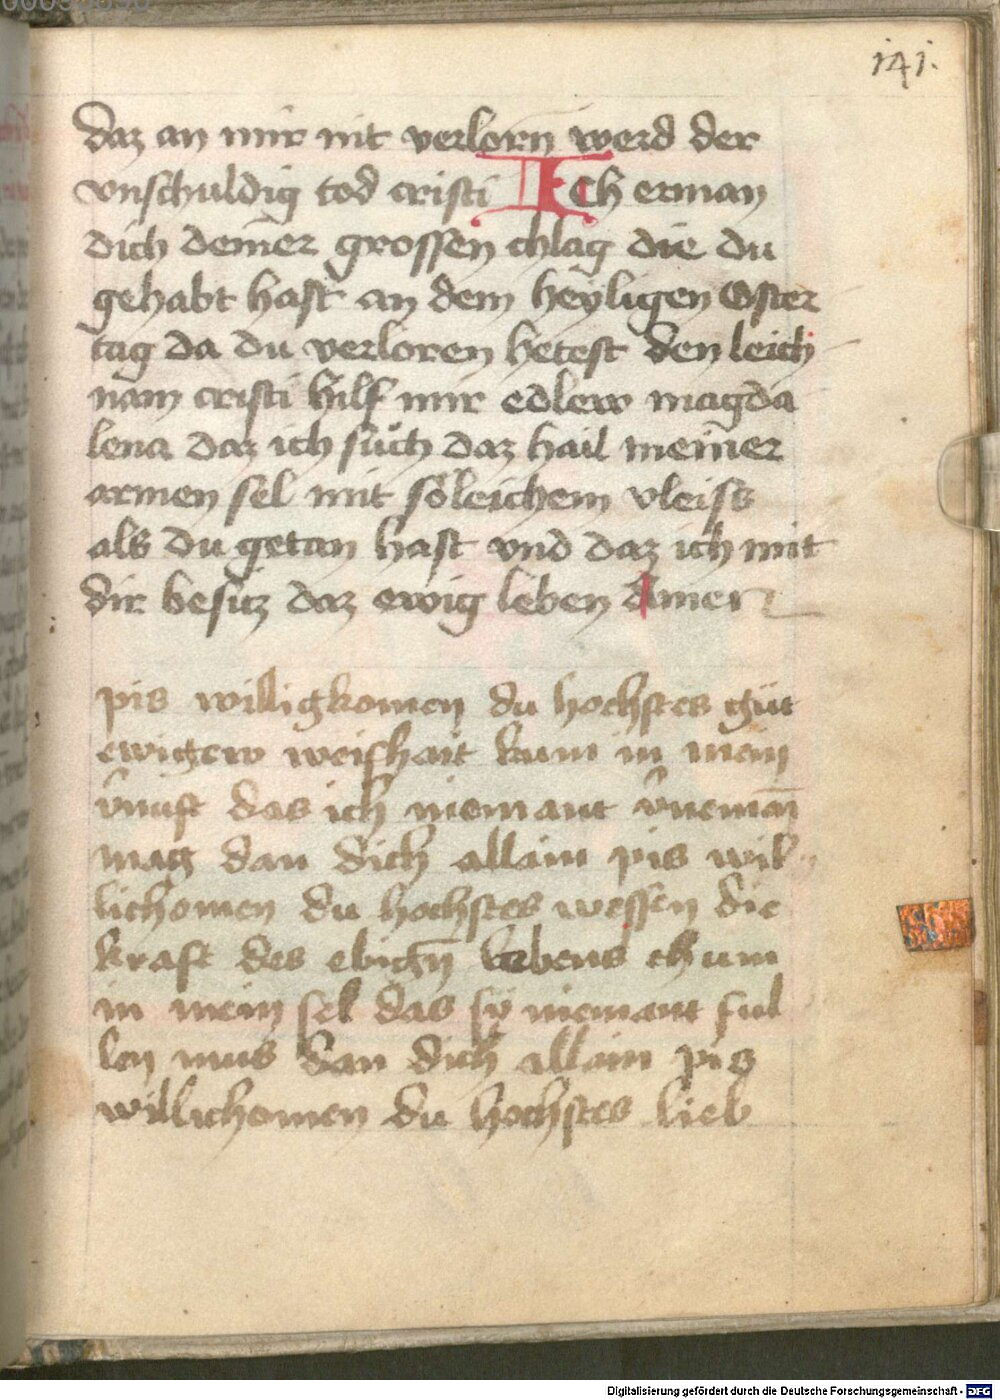 141.
daz an mir nit verlorn werd der
vnschuldig tod cristi Ich erman
dich deiner grossen chlag die du
gehabt hast an dem heyligen Oster
tag da du verloren hetest den leich
nam cristi hilf mir edlew magda
lena daz ich such daz hail meiner
armen sel mit soleichem vleiss
als du getan hast vnd daz ich mit
dir besitz daz ewig leben Amen
pis willigkomen du hochstes gut
ewigew weishait kum in mein
v̄nuft das ich niemant v̄neman̄
mag dan dich allain pis wil
lichomen du hochstes wessen die
kraft des ebign̄ lebens chum
in mein sel das sy niemant ful
len mus dan dich allain pis
willichomen du hochstes lieb
Digitalisierung gefördert durch die Deutsche Forschungsgemeinschaft - DFG